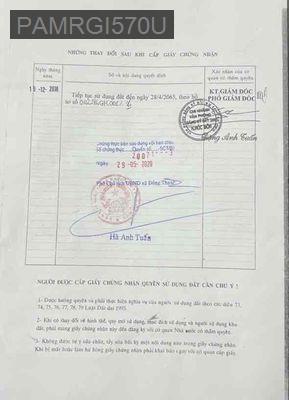 PAMRGI570U
NHỮNG THAY ĐỔI SAU KHI CẤP GIẤY CHỨNG NHẬN
Ngày tháng năm
Số và nội dung quyết định
Xác nhận của cơ quan có thẩm quyền
Tiếp tục sử dụng đất đến ngày 28/4/2065, theo hồ sơ số
KT. GIÁM ĐỐC
PHÓ GIÁM ĐỐC
Anh Tuấn
Chứng thực bản sao đúng với bản chính
Số chứng thực Quyển số SCT/BS
ngày 29-05-2020
Phó Chủ tịch UBND xã Đông
Hà Anh Tuấn
NGƯỜI ĐƯỢC CẤP GIẤY CHỨNG NHẬN QUYỀN SỬ DỤNG ĐẤT CẦN CHÚ Ý !
1- Được hưởng quyền và phải thực hiện nghĩa vụ của người sử dụng đất theo các điều 73, 74, 75, 76, 77, 78, 79 Luật Đất đai 1993.
2- Khi có thay đổi về hình thể, quy mô sử dụng, mục đích sử dụng và người sử dụng khu đất, phải mang giấy chứng nhận này đến đăng ký với cơ quan Nhà nước có thẩm quyền.
3- Không được tự ý sửa chữa, tẩy xóa bất kỳ một nội dung nào trong giấy chứng nhận. Khi bị mất hoặc làm hư hỏng giấy chứng nhận phải khai báo ngay với cơ quan cấp giấy.